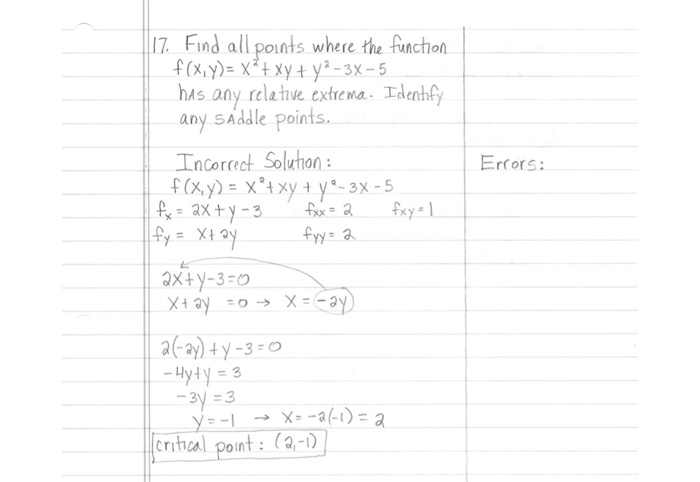 17. Find all points where the function
f(x,y) = x² + xy + y² - 3x - 5
has any relative extrema. Identify
any saddle points.
Incorrect Solution:
Errors:
f(x,y) = x² + xy + y² - 3x - 5
fx = 2x + y - 3 fxx = 2 fxy = 1
fy = x + 2y fyy = 2
2x + y - 3 = 0
x + 2y = 0 → x = -2y
2(-2y) + y - 3 = 0
-4y + y = 3
-3y = 3
y = -1 → x = -2(-1) = 2
critical point: (2,-1)